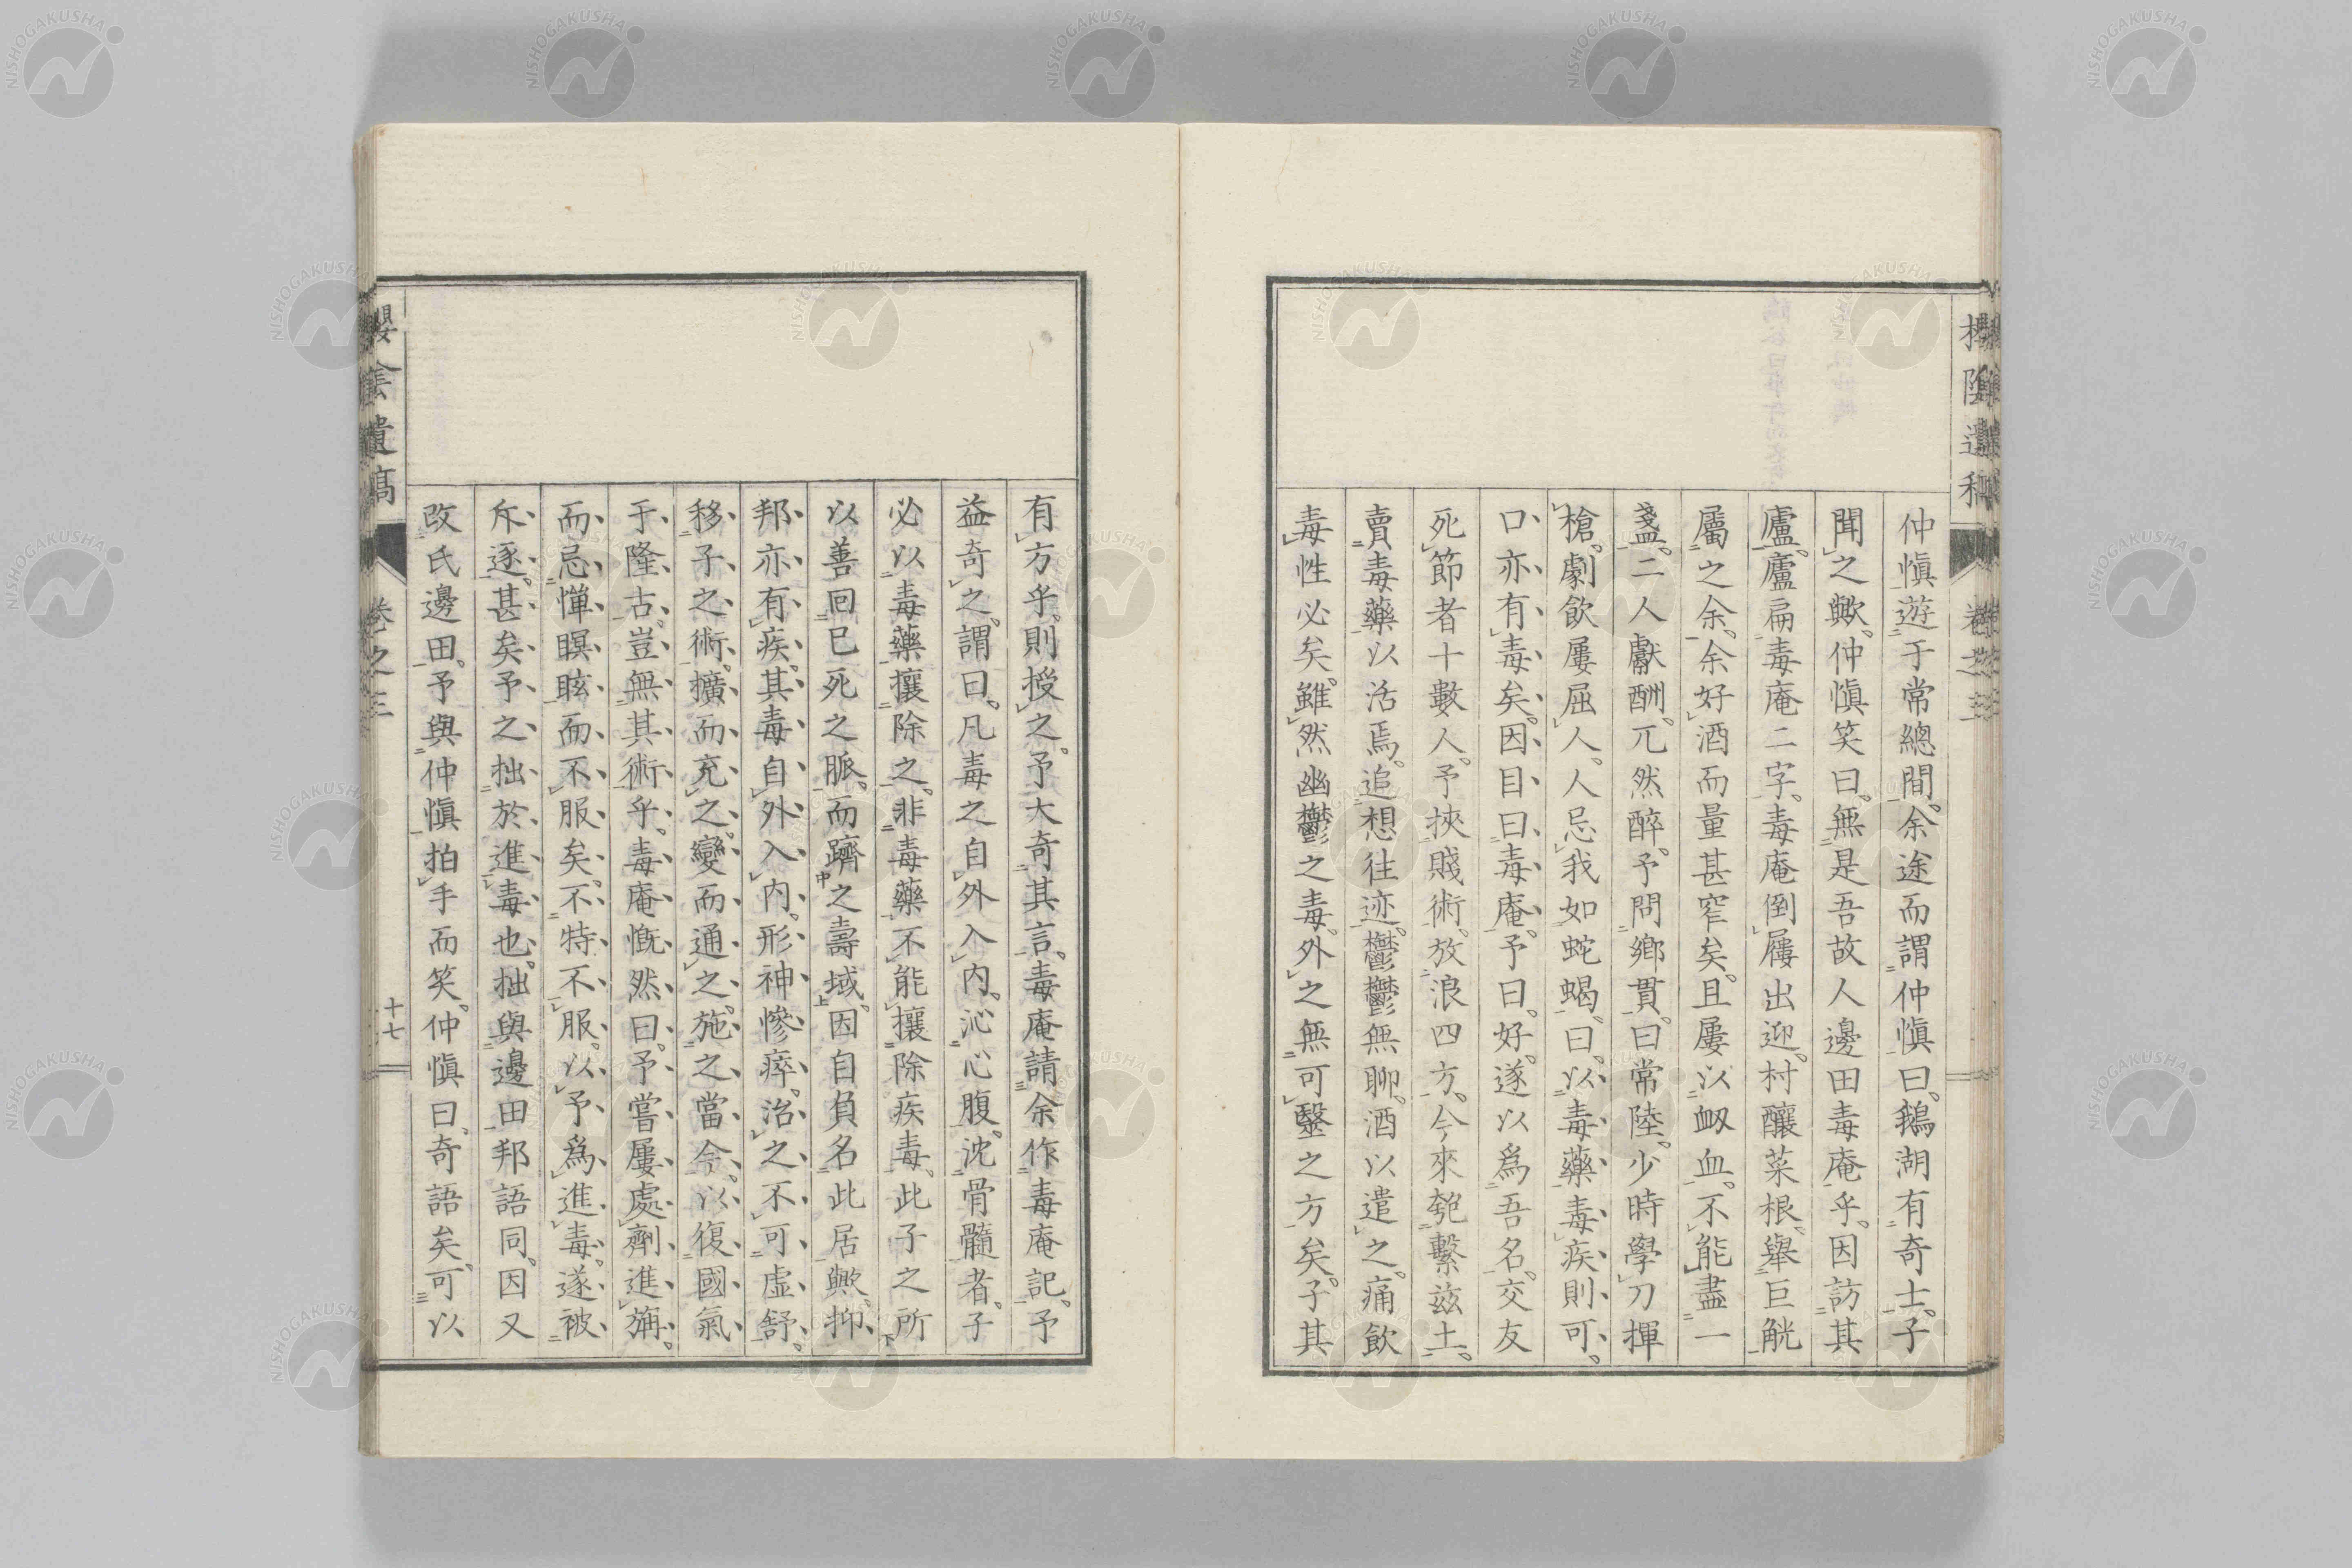 仲愼遊于常總間。余途而謂仲愼曰。鵝湖有奇士。子
聞之歟。仲愼笑曰。無是吾故人邊田毒庵乎。因訪其
廬。廬扁毒庵二字。毒庵倒屣出迎。村釀菜根、舉巨觥
屬之余。余好酒而量甚窄矣。且屢以衂血。不能盡一
盞。二人獻酬。兀然醉。予問鄉貫。曰常陸。少時學刀揮
槍。劇飲屢屈人。人忌我如蛇蝎。曰。以毒藥毒疾則可。
口亦有毒矣。因目曰毒庵。予曰。好。遂以爲吾名。交友
死節者十數人。予挾賤術。放浪四方。今來匏繫茲土。
賣毒藥以活焉。追想往迹。鬱鬱無聊。酒以遣之。痛飲
毒性必矣。雖然幽鬱之毒。外之無可毉之方矣。子其
有方乎。則授之。予大奇其言。毒庵請余作毒庵記。予
益奇之。謂曰。凡毒之自外入內。沁心腹。沈骨髓者。子
必以毒藥攘除之。非毒藥不能攘除疾毒。此子之所
以善回已死之脈。而躋之壽域。因自負名此居歟。抑
邦亦有疾。其毒自外入內。形神慘瘁。治之不可虛舒。
移子之術。擴而充之。變而通之。施之當今。以復國氣
于隆古。豈無其術乎。毒庵慨然曰。予嘗屢處劑進旃。
而忌憚瞑眩而不服矣。不特不服。以予爲進毒。遂被
斥逐。甚矣予之拙於進毒也。拙與邊田邦語同。因又
改氏邊田。予與仲愼拍手而笑。仲愼曰、奇語矣。可以
卷之三
十七
NISHOGAKUSHA